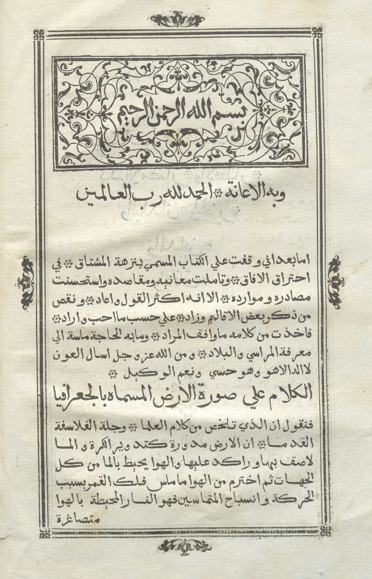 بسم الله الرحمن الرحيم
وبه الاعانة ۞ الحمد لله رب العالمين
اما بعد اني وقفت علي الكتاب المسمي بنزهة المشتاق ۞ في
احتراق الافاق ۞ وتاملت معانيه ومقاصده واستحسنت
مصادره وموارده ۞ الا انه اكثر القول واعاد ۞ ونقص
من ذكر بعض الاقاليم وزاد ۞ علي حسب ما احب واراد ۞
فاخذت من كلامه ما وافق المراد ۞ وما به الحاجة ماسة الي
معرفة المراسي والبلاد ۞ و من الله عز وجل اسال العون
لا اله الا هو وهو حسبي ونعم الوكيل ۞
الكلام علي صورة الارض المسماه بالجعرافيا
فنقول ان الذي تلخص من كلام العلما ۞ وجلة الفلاسفة
القدما ۞ ان الارض مدورة كتدوير الكرة و الما
لاصف بها وراكد عليها والهوا يحيط بالما من كل
الجهات ثم اخترم من الهوا ما ماس فلك القمر بسبب
الحركة و انسباح المتماسين فهو النار المحيطة بالهوا
متصاغرة